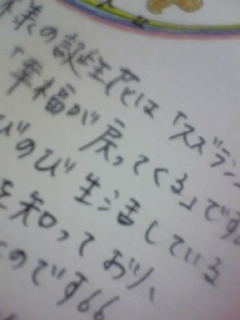 様の誕生花は「スズラン
「幸福が戻ってくる」です
びのび生活している
を知っており、
のです